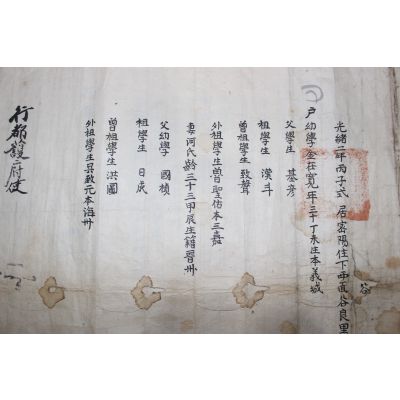 光緒二年丙子式 居密陽住下西面谷良里
戶幼學金在寬年三十丁未生本義城
父學生 基彦
祖學生 漢斗
曾祖學生 致聲
外祖學生曺聖佑本三嘉
妻河氏齡三十三甲辰生籍晉州
父幼學 國楨
祖學生 日成
曾祖學生 洪圖
外祖學生吳致元本海州
行都護府使